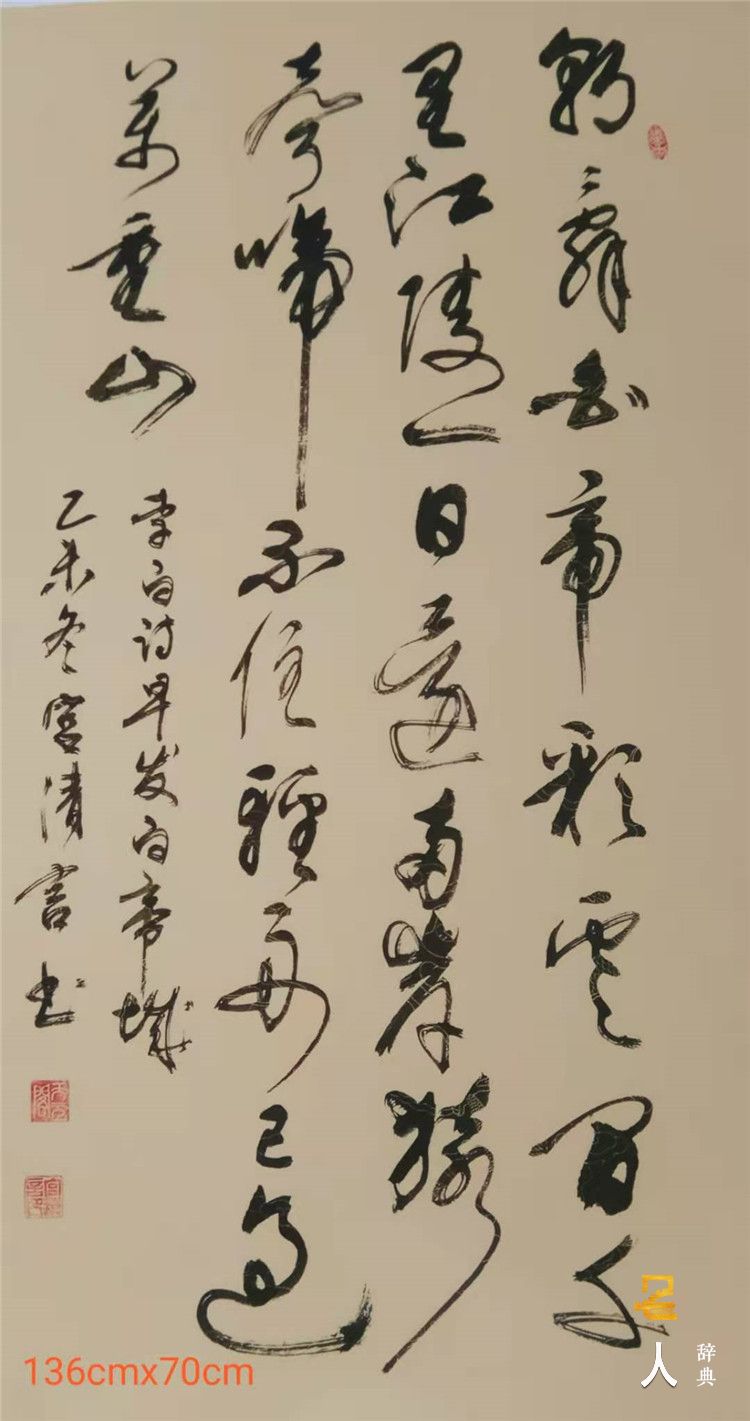 朝辭白帝彩雲間千
里江陵一日還兩岸猿
聲啼不住輕舟已過
萬重山
李白诗早发白帝城
乙未冬宫清言书
136cmx70cm
名人辞典